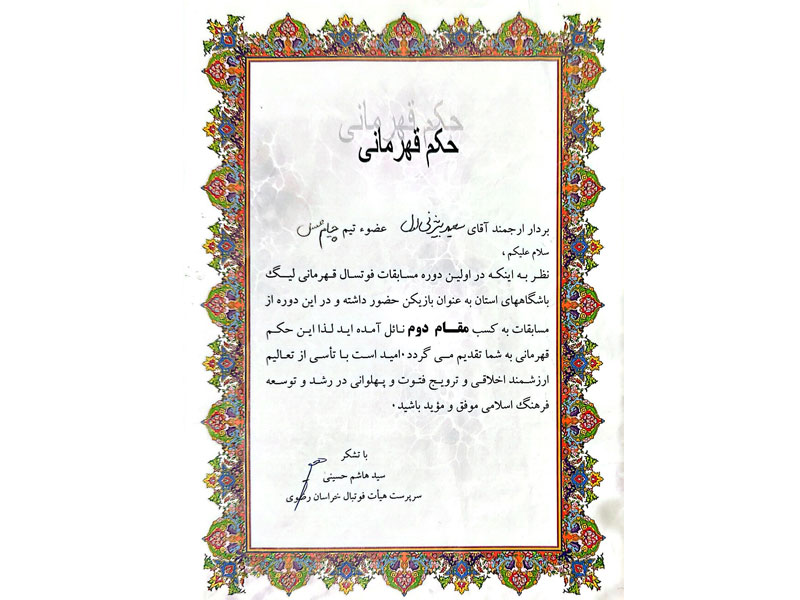 حکم قهرمانی
بردار ارجمند آقای سعید بیژنی اول عضوء تیم پیام
سلام علیکم ،
نظر به اینکه در اولین دوره مسابقات فوتسال قهرمانی لیگ
باشگاههای استان به عنوان بازیکن حضور داشته و در این دوره از
مسابقات به کسب مقام دوم نائل آمده اید لذا این حکم
قهرمانی به شما تقدیم می گردد۰امید است با تأسی از تعالیم
ارزشمند اخلاقی و ترویج فتوت و پهلوانی در رشد و توسعه
فرهنگ اسلامی موفق و مؤید باشید۰
با تشکر
سید هاشم حسینی
سرپرست هیأت فوتبال خراسان رضوی